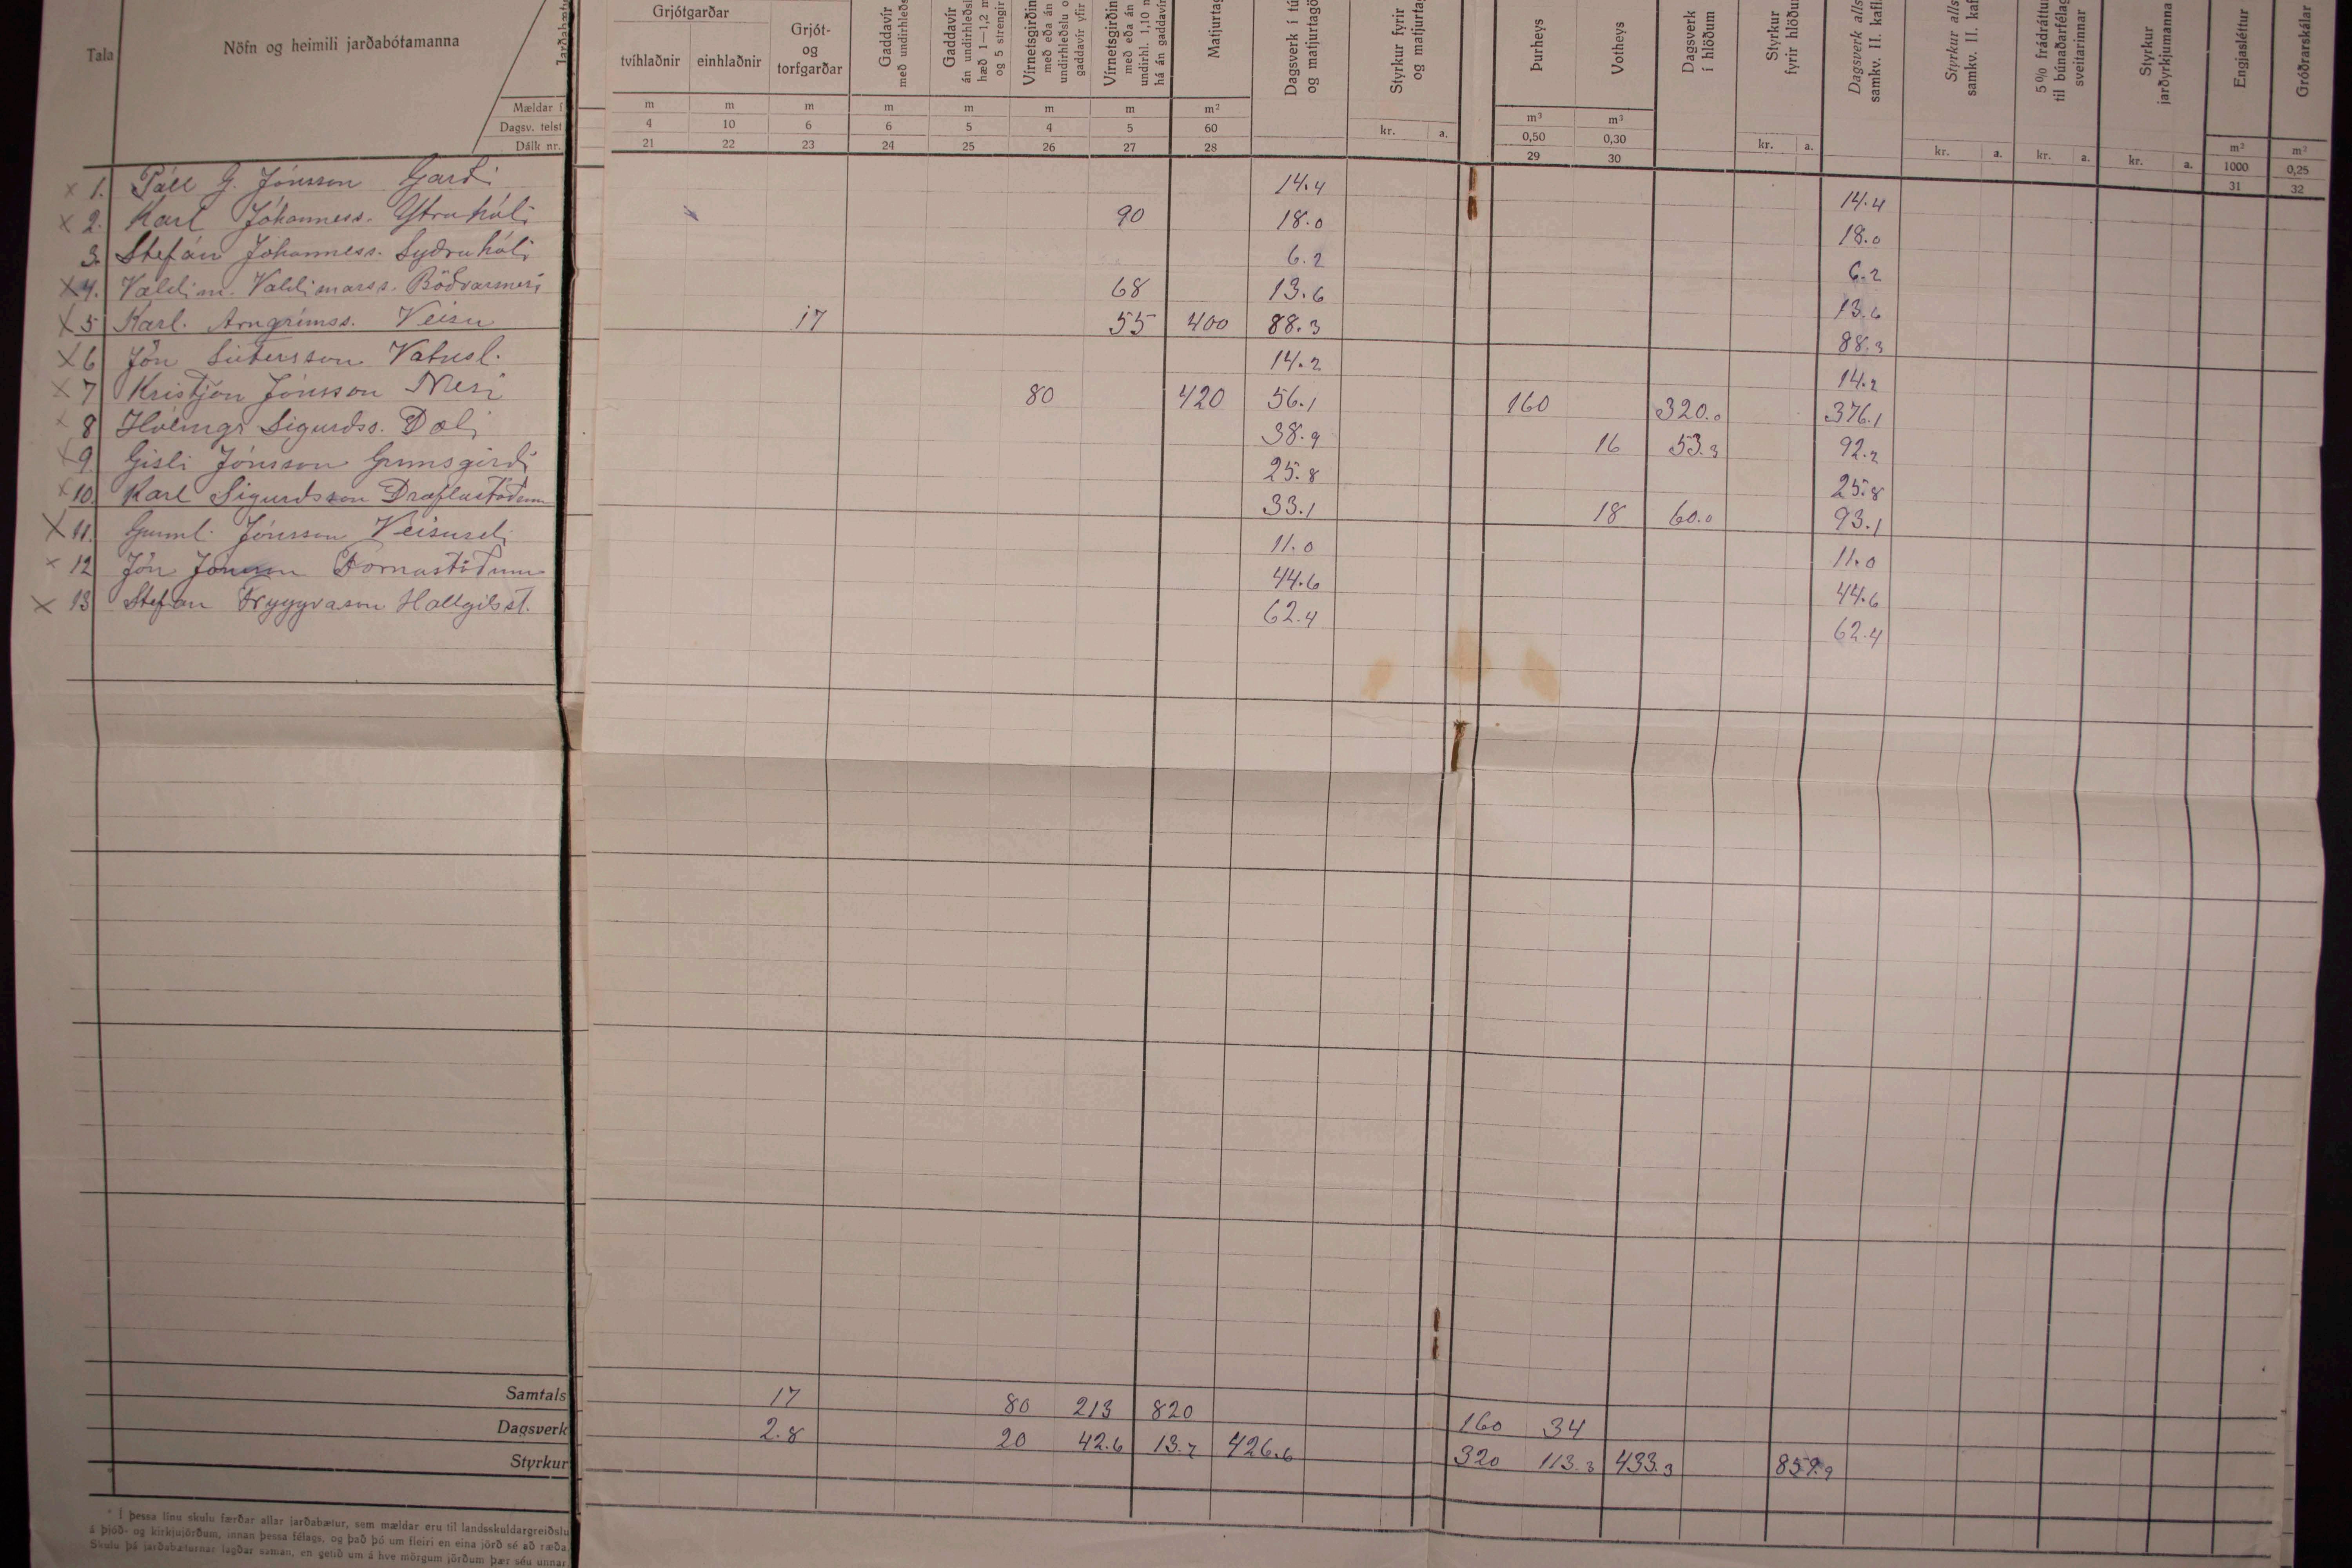 Tala Nöfn og heimili jarðabótamanna
Grjótgarðar
tvíhlaðnir einhlaðnir
Grjót- og torfgarðar
Gaddavír
með undirhleðs
Gaddavír
án undirhleðsl
hæð 1—1,2 m
og 5 strengir
Vírnetsgirðin
með eða án
undirhleðslu o
gaddavír yfir
Vírnetsgirðin
með eða án
undirhl. 1,10 m
há án gaddavír
Matjurtag
Dagsverk í tú
og matjurtagö
Styrkur fyrir
og matjurtag
Þurheys
Votheys
Dagsverk
í hlöðum
Styrkur
fyrir hlöðu
Dagsverk alls
samkv. II. kafl.
Styrkur alls
samkv. II. kaf
5% frádráttu
til búnaðarfélag
sveitarinnar
Styrkur
jarðyrkjumanna
Engjasléttur
Gróðrarskálar
Mældar í m m m m m m m m² kr. a. m³ m³ kr. a. kr. a. kr. a. kr. a. m² m³
Dagsv. telst 4 10 6 6 5 4 5 60 0,50 0,30 1000 0,25
Dálk nr. 21 22 23 24 25 26 27 28 29 30 31 32
x 1. Páll G. Jónsson Garði 14.4 14.4
x 2. Karl Jóhanness. Ytrahóli 90 18.0 18.0
3. Stefán Jóhanness. Syðrahóli 6.2 6.2
x 4. Valdim. Valdimarss. Böðvarsnesi 68 13.6 13.6
x 5 Karl. Arngrímss. Veisu 17 55 400 88.3 88.3
x 6 Jón Vatnsl. 14.2 14.2
x 7 Kristján Jónsson Nesi 80 420 56.1 160 320.0 376.1
x 8 Sigurdss. Dæli 38.9 16 53.3 92.2
x 9. Gísli Jónsson Grímsgerði 25.8 25.8
x 10. Karl Sigurdsson Draflastöðum 33.1 18 60.0 93.1
x 11. Gunnl. Jónsson Veisuseli 11.0 11.0
x 12 Jón Jónsson Fornastöðum 44.6 44.6
x 13 Stefán Tryggvason Hallgilsst. 62.4 62.4
Samtals 17 80 213 820 160 34
Dagsverk 2.8 20 42.6 13.7 426.6 320 113.3 433.3 859.9
Styrkur
* Í þessa línu skulu færðar allar jarðabætur, sem mældar eru til landsskuldargreiðslu
á þjóð- og kirkjujörðum, innan þessa félags, og það þó um fleiri en eina jörð sé að ræða.
Skulu þá jarðabæturnar lagðar saman, en getið um á hve mörgum jörðum þær séu unnar